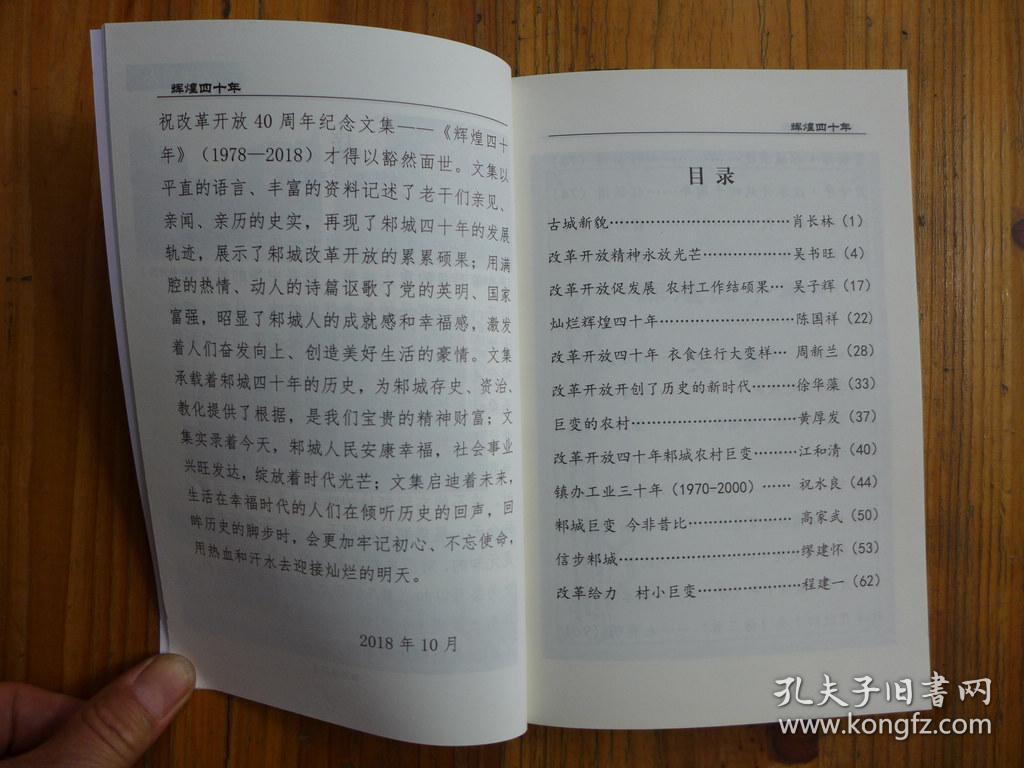 辉煌四十年
祝改革开放 40 周年纪念文集——《辉煌四十
年》（1978—2018）才得以豁然面世。文集以
平直的语言、丰富的资料记述了老干们亲见、
亲闻、亲历的史实，再现了邾城四十年的发展
轨迹，展示了邾城改革开放的累累硕果；用满
腔的热情、动人的诗篇讴歌了党的英明、国家
富强，昭显了邾城人的成就感和幸福感，激发
着人们奋发向上、创造美好生活的豪情。文集
承载着邾城四十年的历史，为邾城存史、资治、
教化提供了根据，是我们宝贵的精神财富；文
集实录着今天，邾城人民安康幸福，社会事业
兴旺发达，绽放着时代光芒；文集启迪着未来，
生活在幸福时代的人们在倾听历史的回声，回
眸历史的脚步时，会更加牢记初心、不忘使命，
用热血和汗水去迎接灿烂的明天。
2018 年 10 月
辉煌四十年
目录
古城新貌……………………………肖长林（1）
改革开放精神永放光芒……………吴书旺（4）
改革开放促发展 农村工作结硕果… 吴子辉（17）
灿烂辉煌四十年……………………陈国祥（22）
改革开放四十年 衣食住行大变样… 周新兰（28）
改革开放开创了历史的新时代………徐华藻（33）
巨变的农村…………………………黄厚发（37）
改革开放四十年邾城农村巨变………江和清（40）
镇办工业三十年（1970-2000）…… 祝水良（44）
邾城巨变 今非昔比………………… 高家武（50）
信步邾城……………………………缪建怀（53）
改革给力 村小巨变………………程建一（62）
孔夫子旧书网
www.kongfz.com